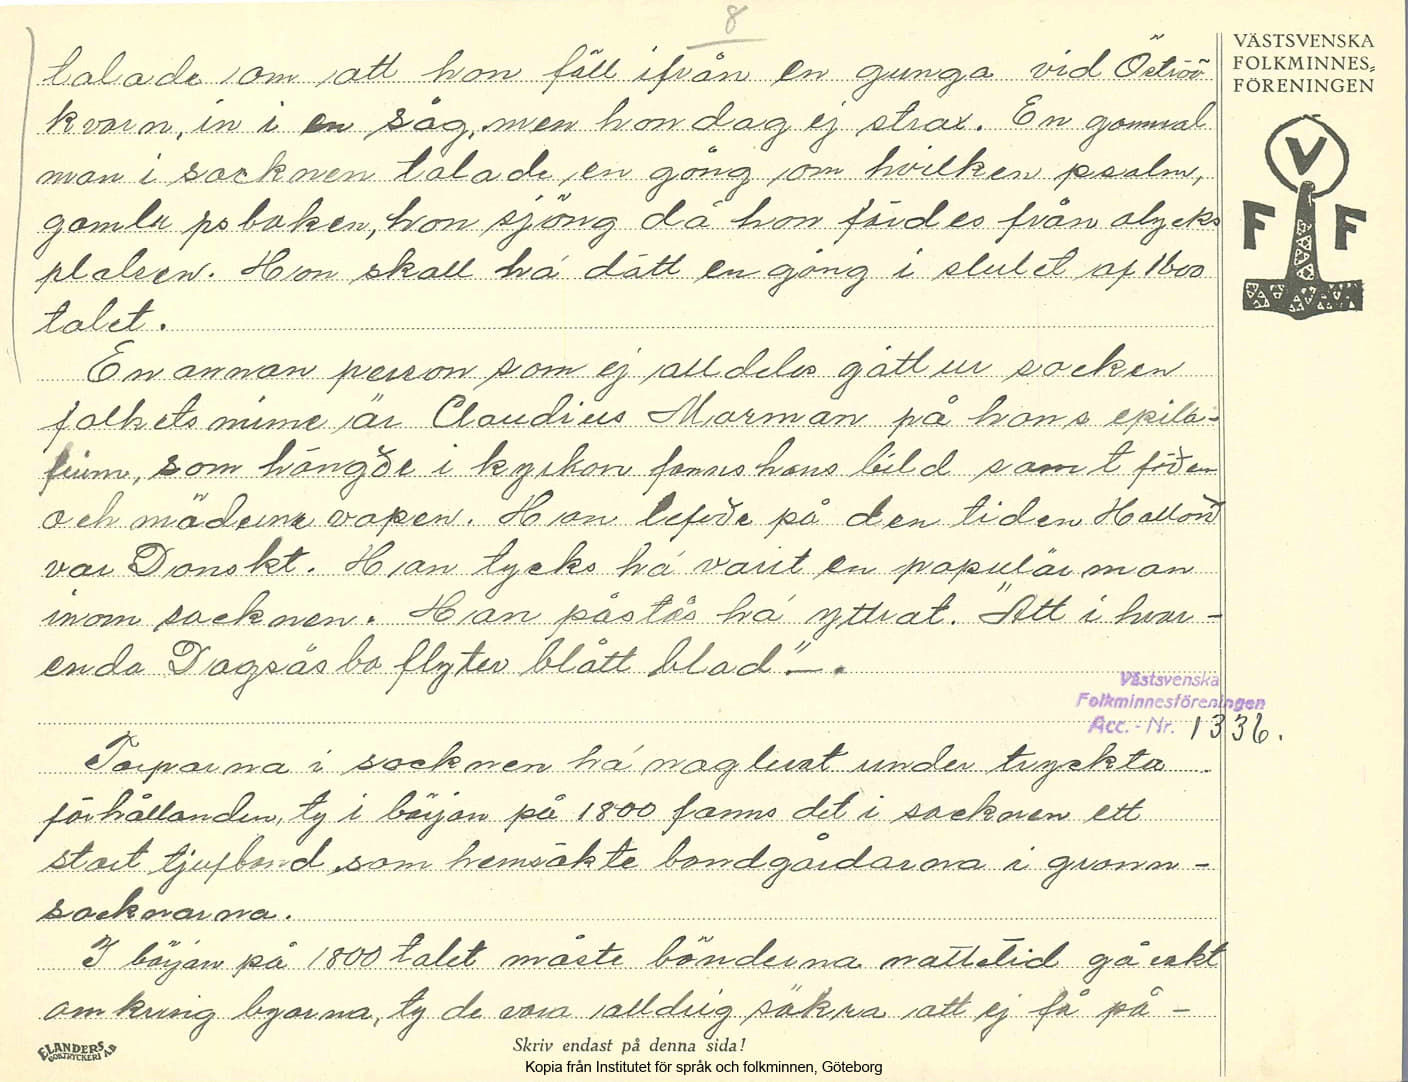 8
talade om att hon föll ifrån en gunga vid Öströö
kvarn, in i en såg, men hon dog ej strax. En gammal
man i socknen talade en gång om hvilken psalm,
gamla psboken, hon sjöng då hon fördes från olycks
platsen. Hon skall há dött en gång i slutet af 1600
talet.
En annan person som ej alldeles gått ur socken
folkets minne är Claudius Marman på hans epita-
fium, som hängde i kyrkan fanns hans bild samt föden
och mödeine vapen. Han lefde på den tiden Halland
var Danskt. Han tycks há varit en populär man
inom socknen. Han påstås há yttrat. "Att i hvar-
enda Dagsåsbo flyter blått blod"—.
Torparna i socknen há nog levat under tryckta
förhållanden, ty i början på 1800 fanns det i socknen ett
stort tjufband som hemsökte bondgårdarna i grann-
socknarna.
I början på 1800 talet måste bönderna nattetid gå vakt
omkring byarna, ty de vora alldrig säkra att ej få på-
VÄSTSVENSKA
FOLKMINNES=
FÖRENINGEN
V
F F
Västsvenska
Folkminnesföreningen
Acc. - Nr. 1336.
ELANDERS
BOKTRYCKERI AB
Skriv endast på denna sida!
Kopia från Institutet för språk och folkminnen, Göteborg